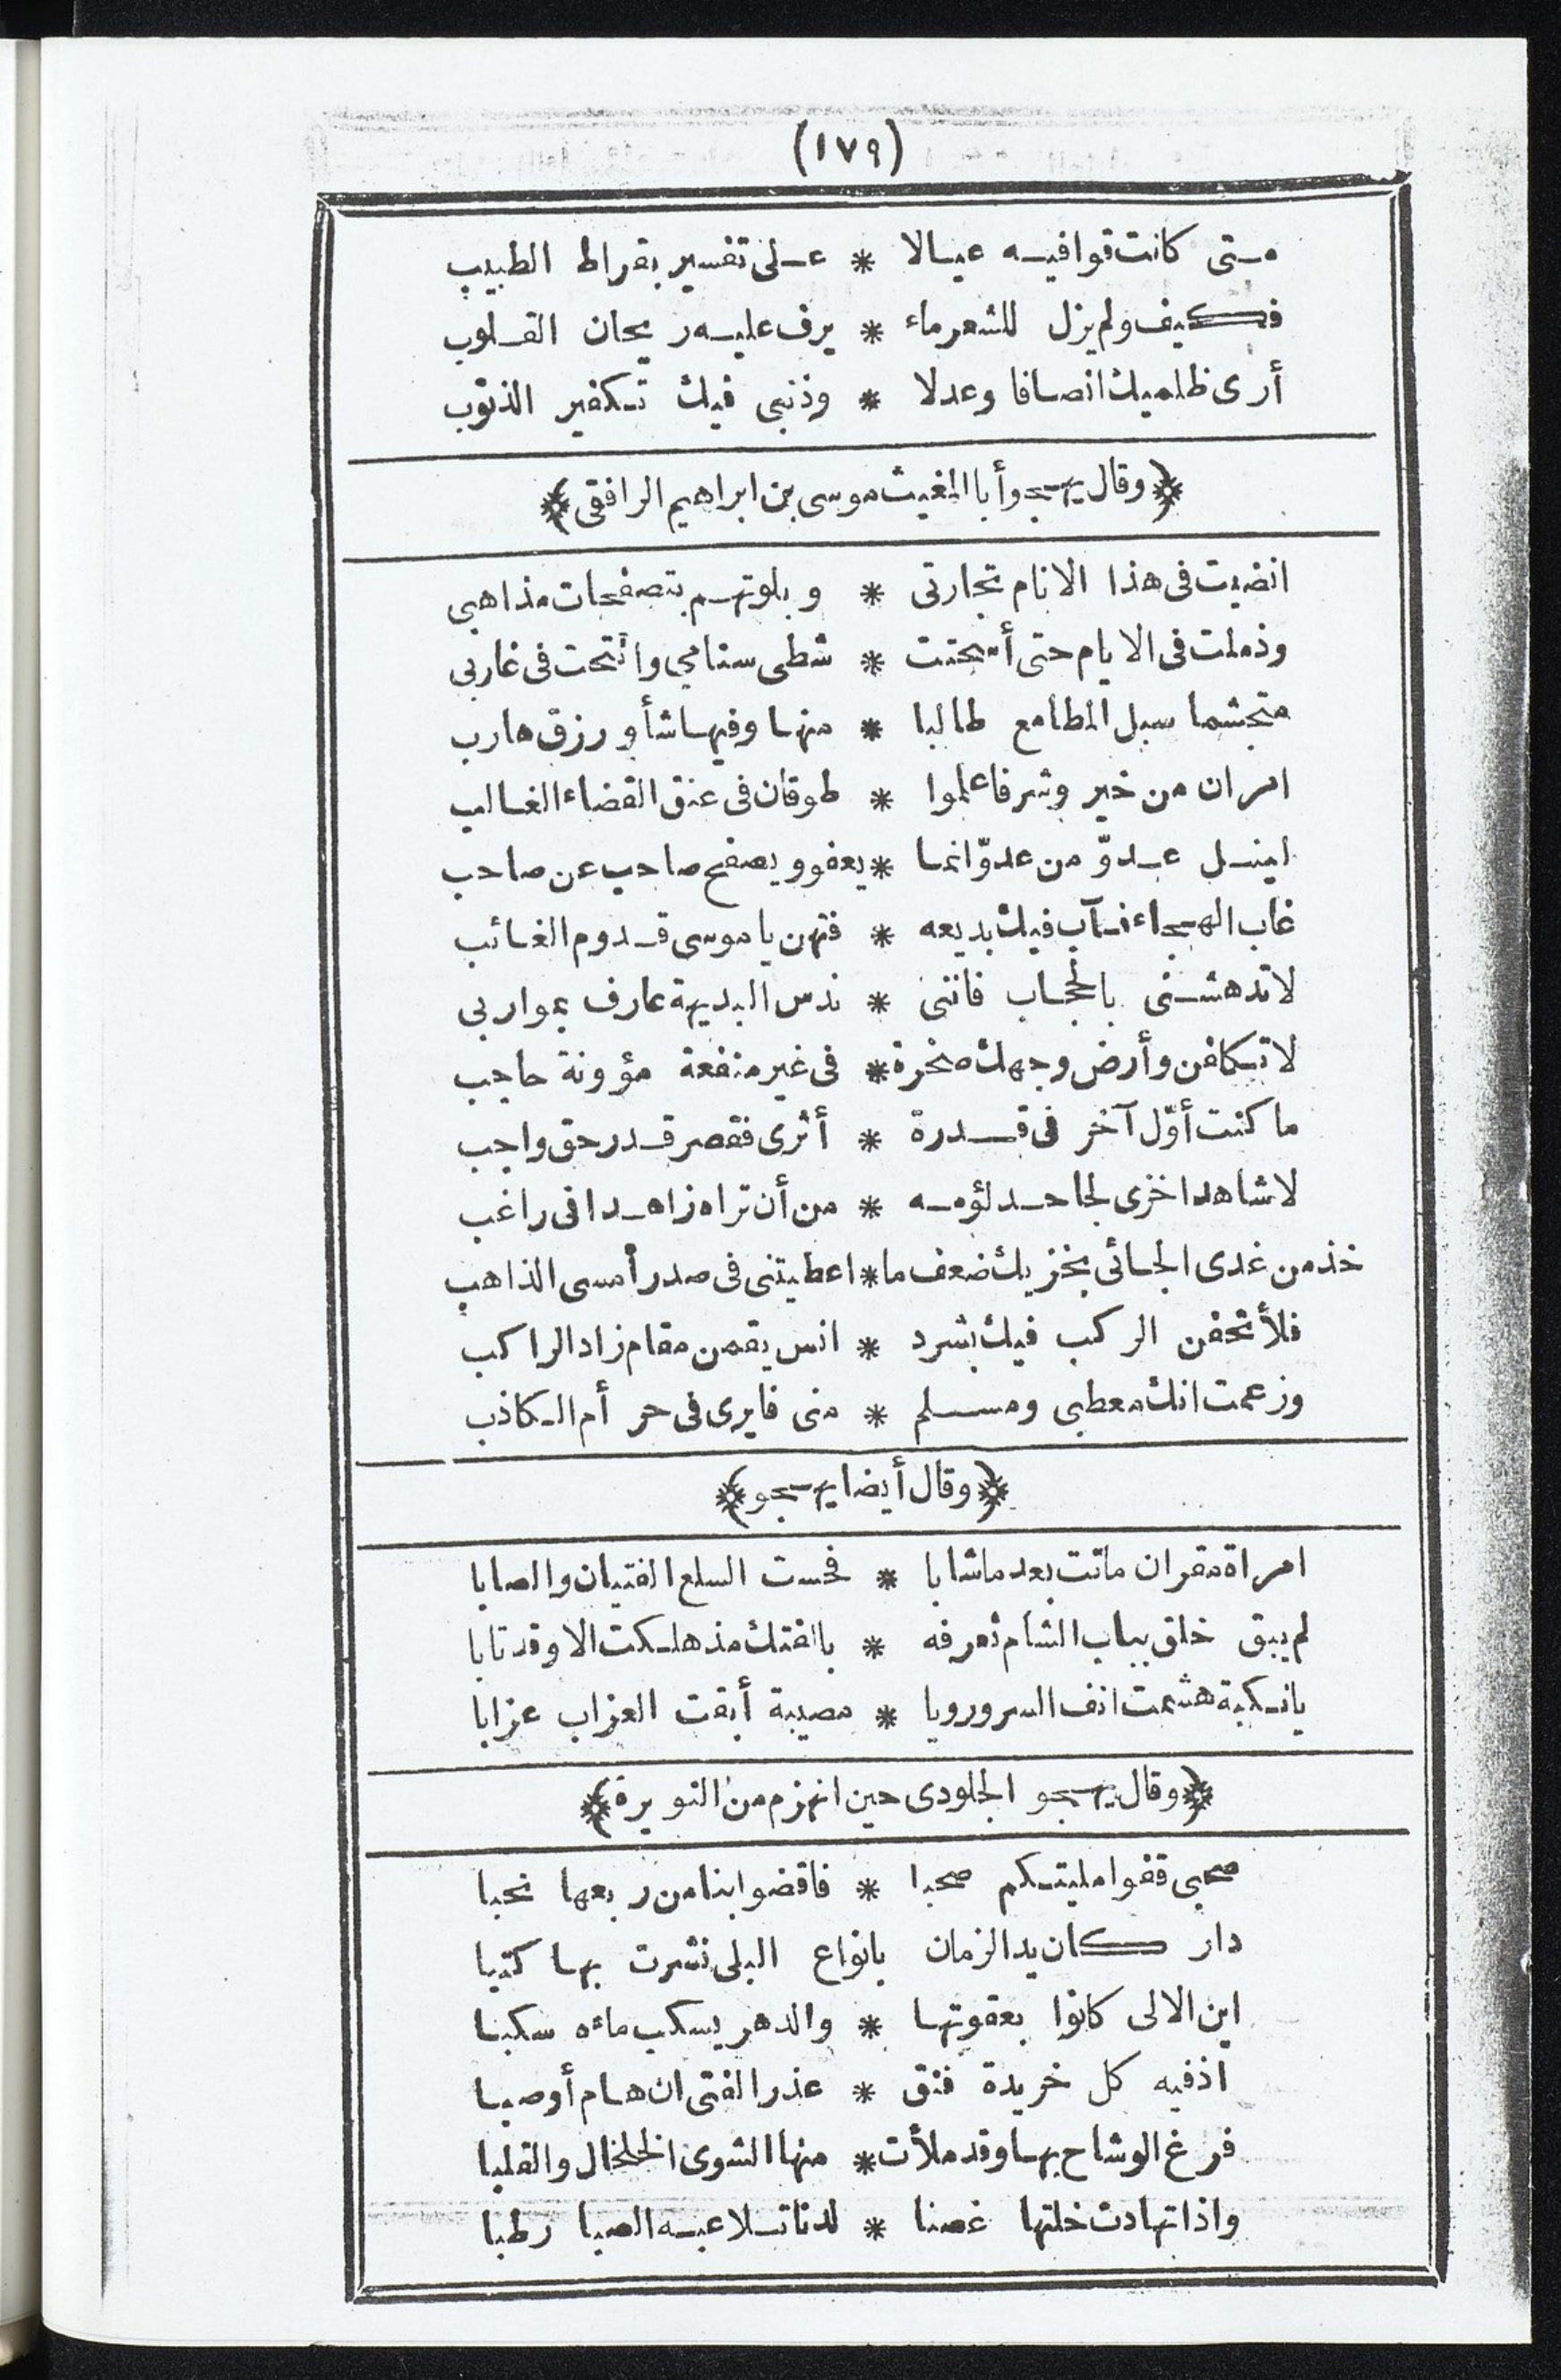 (١٧٩)
متى كانت قوافيه عيالا * على تفسير بقراط الطبيب
فكيف ولم يزل للشعر ماء * يرف عليه ريحان القلوب
أرى ظلميك انصافا وعدلا * وذنبى فيك تكفير الذنوب
﴿وقال يهجو أبا المغيث موسى بن ابراهيم الرافقى﴾
انضيت فى هذا الانام تجارتى * وبلوتهم بتصفحات مذاهبى
وذملت فى الايام حتى أسحتت * شطى سنامى وانتحت فى غاربى
متجشما سبل المطامع طالبا * منها وفيها شأو رزق هارب
امران من خير وشر فاعلموا * طوقان فى عنق القضاء الغالب
لينل عدوّ من عدوّ انما * يعفو ويصفح صاحب عن صاحب
غاب الهجاء فآب فيك بديعه * فتهن يا موسى قدوم الغائب
لا تدهشنى بالحجاب فاننى * ندس البديهة عارف بمواربى
لا تكلفن وأرض وجهك صخرة * فى غير منفعة مؤونة حاجب
ما كنت أوّل آخر فى قدرة * أثرى فقصر قدر حق واجب
لا شاهدا خزى لجاحد لؤمه * من أن تراه زاهدا فى راغب
خذ من غدى الجائى بخزيك ضعف ما * اعطيتنى فى صدر أمسى الذاهب
فلأتحفن الركب فيك بشرد * انس يقمن مقام زاد الراكب
وزعمت انك معطبى ومسلم * منى فايرى فى حر أم الكاذب
﴿وقال أيضا يهجو﴾
امراة مقران ماتت بعد ما شابا * فحست السلع الفتيان والصابا
لم يبق خلق بباب الشام تعرفه * بالفتك مذ هلكت الا وقد تابا
يا نكبة هشمت انف السرور ويا * مصيبة أبقت العزاب عزابا
﴿وقال يهجو الجلودى حين انهزم من النويرة﴾
صحبى قفوا مليتكم صحبا * فاقضوا بنا من ربعها نحبا
دار كان يد الزمان بانواع البلى نشرت بها كتبا
اين الالى كانوا بعقوتها * والدهر يسكب ماءه سكبا
اذ فيه كل خريدة فنق * عذر الفتى ان هام أو صبا
فرغ الوشاح بها وقد ملأت * منها الشوى الخلخال والقلبا
واذا تهادت خلتها غصنا * لدنا تلاعبه الصبا رطبا